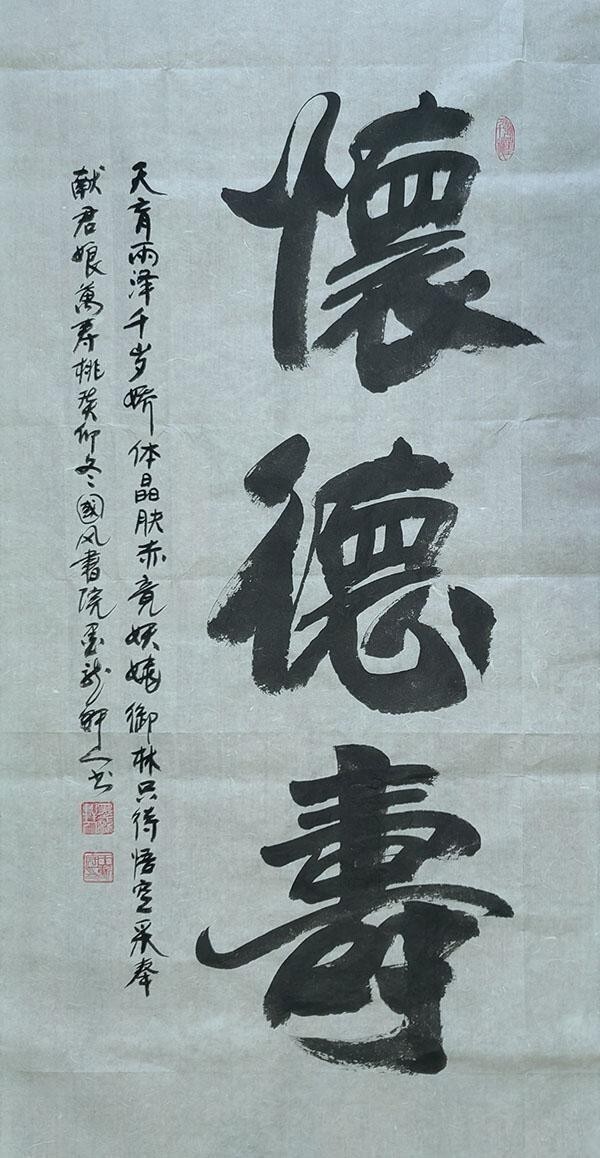 懷德壽
天育雨泽千岁娇体晶肤赤竟妖娆御林只待悟空采奉
献君娘萬寿桃癸卯冬国风書院墨龙轩人书